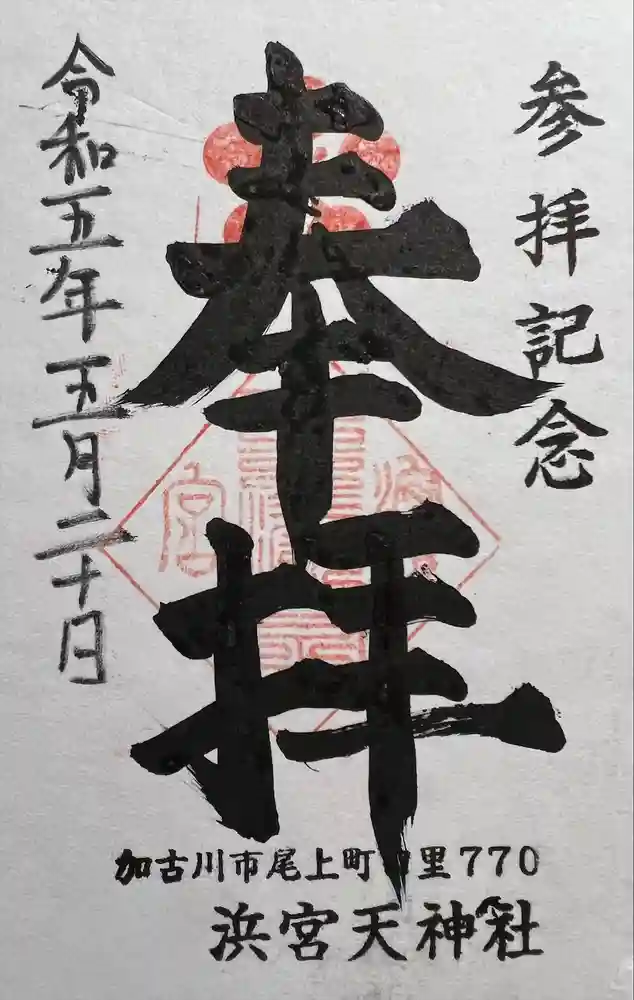 参拝記念
奉拝
令和五年五月二十日
加古川市尾上町 里770
浜宮天神社